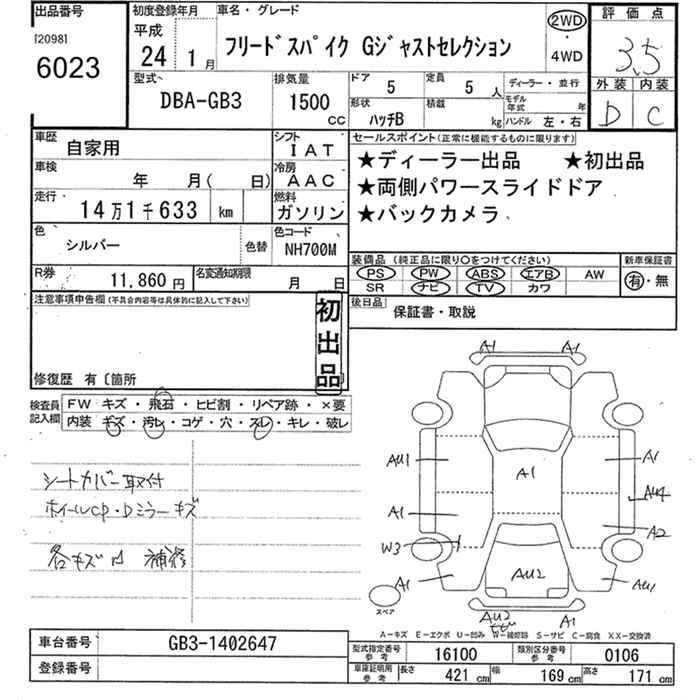 出品番号
[2098]
6023
初度登録年月
平成
24 1月
車名・グレード
フリードスパイク Gジャストセレクション
2WD
・
4WD
評価点
3.5
外装 内装
D C
型式
DBA-GB3
排気量
1500
CC
ドア
5
定員
5 人
ディーラー・並行
形状
ハッチB
積載
kg
モデル年式 年
ハンドル 左・右
車歴
自家用
シフト
IAT
車検
年 月( 日)
冷房
AAC
走行
14万1千633 km
燃料
ガソリン
色
シルバー
色替
色コード
NH700M
R券
11,860 円
名変通知期限
月 日
セールスポイント(正常に機能するものに限ります)
★ディーラー出品 ★初出品
★両側パワースライドドア
★バックカメラ
装備品 (純正品に限り○をつけてください)
PS PW ABS エアB AW
SR ナビ TV カワ
新車保証書
有・無
後日品
保証書・取説
注意事項申告欄(不具合内容等は具体的に記入して下さい)
初出品
修復歴 有〔箇所 〕
検査員記入欄
FW キズ・飛石・ヒビ割・リペア跡・×要
内装 キズ・汚レ・コゲ・穴・スレ・キレ・破レ
シートカバー取付
ホイールCP・Dミラーキズ
各キズ凹 補修
A1 A1
AU1 A1 A1
AU4
A1 A2
W3
A1 AU2 AU1
スペア
AU2 A1
A-キズ E-エクボ U-凹み W-補修跡 S-サビ C-腐食 XX-交換済
車台番号 GB3-1402647
登録番号
型式指定番号 参考 16100
類別区分番号 参考 0106
車庫証明用 参考 長さ 421 cm 幅 169 cm 高さ 171 cm